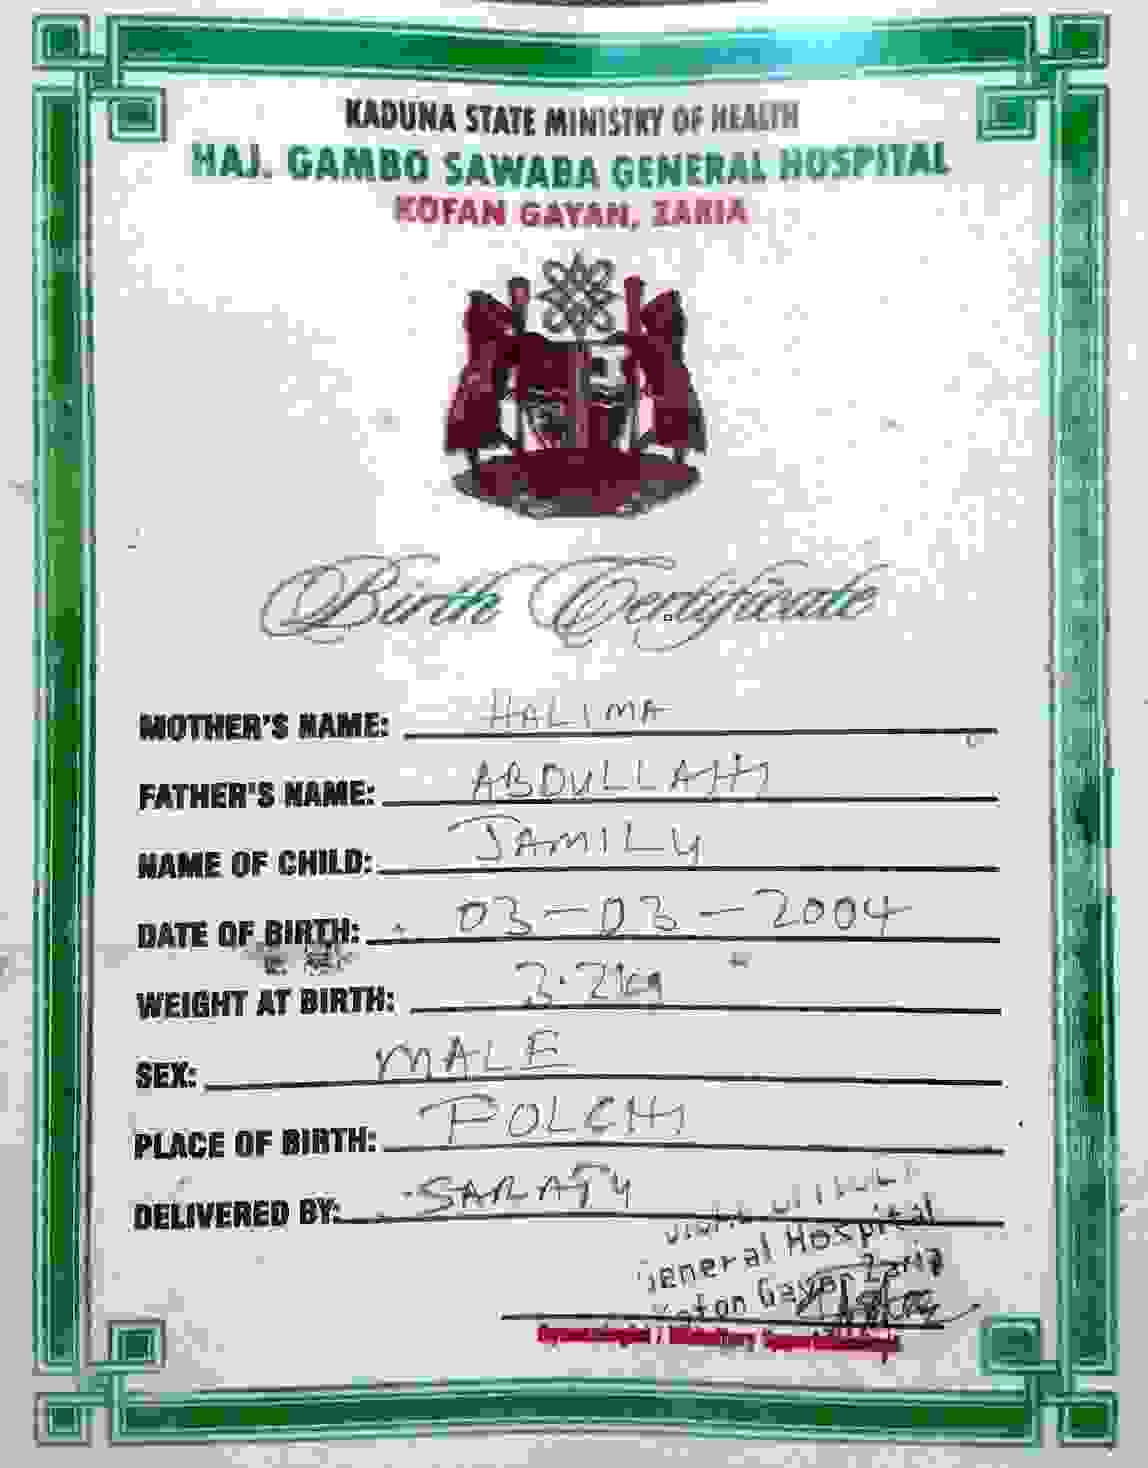 KADUNA STATE MINISTRY OF HEALTH
HAJ. GAMBO SAWABA GENERAL HOSPITAL
KOFAN GAYAN, ZARIA
Birth Certificate
MOTHER'S NAME: HALIMA
FATHER'S NAME: ABDULLAHI
NAME OF CHILD: JAMILU
DATE OF BIRTH: 03-03-2004
WEIGHT AT BIRTH: 3.2kg
SEX: MALE
PLACE OF BIRTH: POLCHI
DELIVERED BY: SARATU
General Hospital
Kofan Gayan Zaria